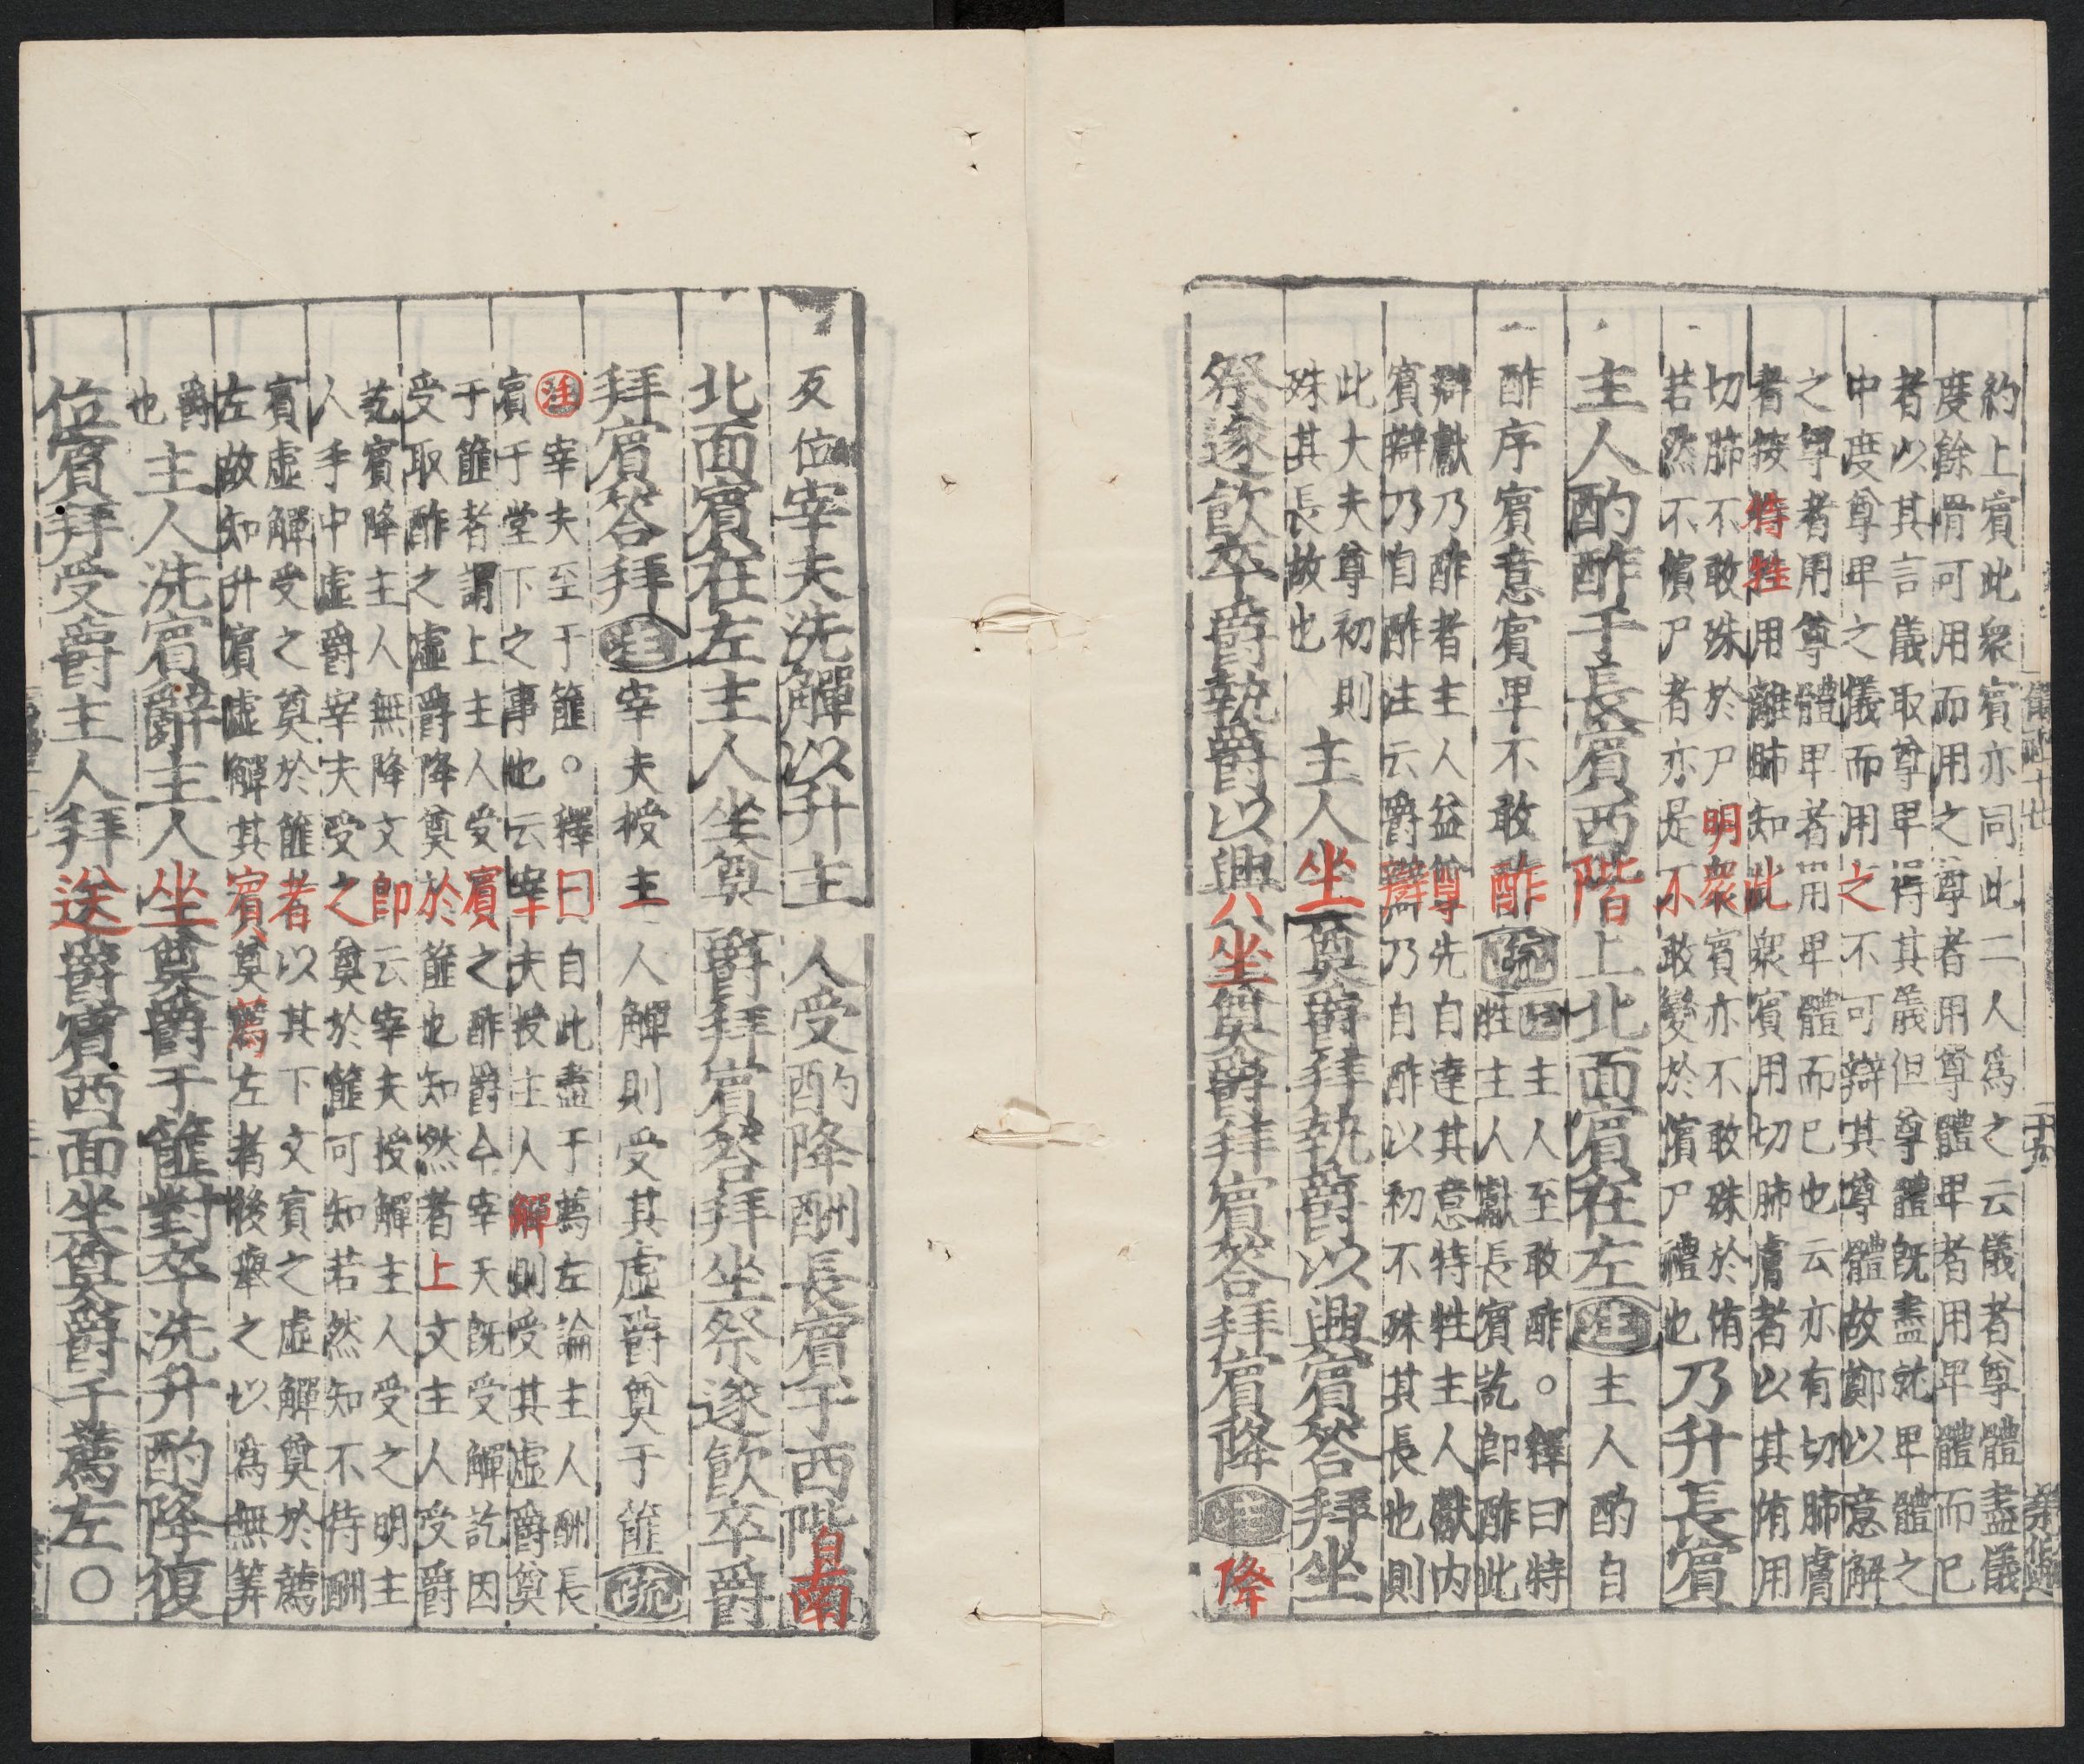 約上賓此衆賓亦同此二人爲之云儀者尊體盡儀
度餘骨可用而用之尊者用尊體卑者用卑體而已
者以其言儀取尊卑得其儀但尊體旣盡就卑體之
中度尊卑之儀而用之不可辯其尊體故鄭以意解
之尊者用尊體卑者用卑體而已也云亦有切肺膚
者按特牲用離肺知此衆賓用切肺膚者以其侑用
切肺不敢殊於尸明衆賓亦不敢殊於侑
若然不儐尸者亦是不敢變於儐尸禮也
乃升長賓
主人酌酢于長賓西階上北面賓在左注主人酌自
酢序賓意賓卑不敢酢疏
主人至敢酢。釋曰特
牲主人獻長賓訖卽酢此
辯獻乃酢者主人益尊先自達其意特牲主人獻内
賓辯乃自酢注云爵辯乃自酢以初不殊其長也則
此大夫尊初則
殊其長故也
主人坐奠爵拜執爵以興賓荅拜坐
祭遂飲卒爵執爵以興坐奠爵拜賓荅拜賓降注降
反位宰夫洗觶以升主人受酌降酬長賓于西階南
北面賓在左主人坐奠爵拜賓荅拜坐祭遂飲卒爵
拜賓荅拜注宰夫授主人觶則受其虛爵奠于篚疏
注宰夫至于篚。釋曰自此盡于薦左論主人酬長
賓于堂下之事也云宰夫授主人觶則受其虛爵奠
于篚者謂上主人受賓之酢爵今宰夫旣受觶訖因
受取酢之虛爵降奠於篚也知然者上文主人受爵
訖賓降主人無降文卽云宰夫授觶主人受之明主
人手中虛爵宰夫受之奠於篚可知若然知不待酬
賓虛觶受之奠於篚者以其下文賓之虛觶奠於薦
左故知升賓虛觶其賓奠薦左者後舉之以爲無筭
爵
也
主人洗賓辭主人坐奠爵于篚對卒洗升酌降復
位賓拜受爵主人拜送爵賓西面坐奠爵于薦左○